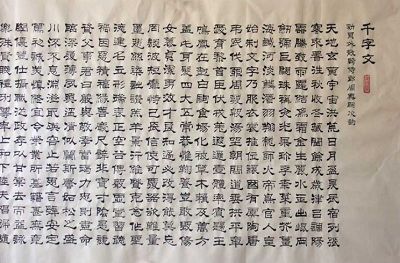 千字文
敕員外散騎侍郎周興嗣次韻
天地玄黃宇宙洪荒日月盈昃辰宿列張
寒來暑往秋收冬藏閏餘成歲律呂調陽
雲騰致雨露結為霜金生麗水玉出崑岡
劍號巨闕珠稱夜光果珍李柰菜重芥薑
海鹹河淡鱗潛羽翔龍師火帝鳥官人皇
始制文字乃服衣裳推位讓國有虞陶唐
弔民伐罪周發殷湯坐朝問道垂拱平章
愛育黎首臣伏戎羌遐邇壹體率賓歸王
鳴鳳在樹白駒食場化被草木賴及萬方
蓋此身髮四大五常恭惟鞠養豈敢毀傷
女慕貞潔男效才良知過必改得能莫忘
罔談彼短靡恃己長信使可覆器欲難量
墨悲絲染詩讚羔羊景行維賢克念作聖
德建名立形端表正空谷傳聲虛堂習聽
禍因惡積福緣善慶尺璧非寶寸陰是競
資父事君曰嚴與敬孝當竭力忠則盡命
臨深履薄夙興溫凊似蘭斯馨如松之盛
川流不息淵澄取映容止若思言辭安定
篤初誠美慎終宜令榮業所基籍甚無竟
學優登仕攝職從政存以甘棠去而益詠
樂殊貴賤禮別尊卑上和下睦夫唱婦隨